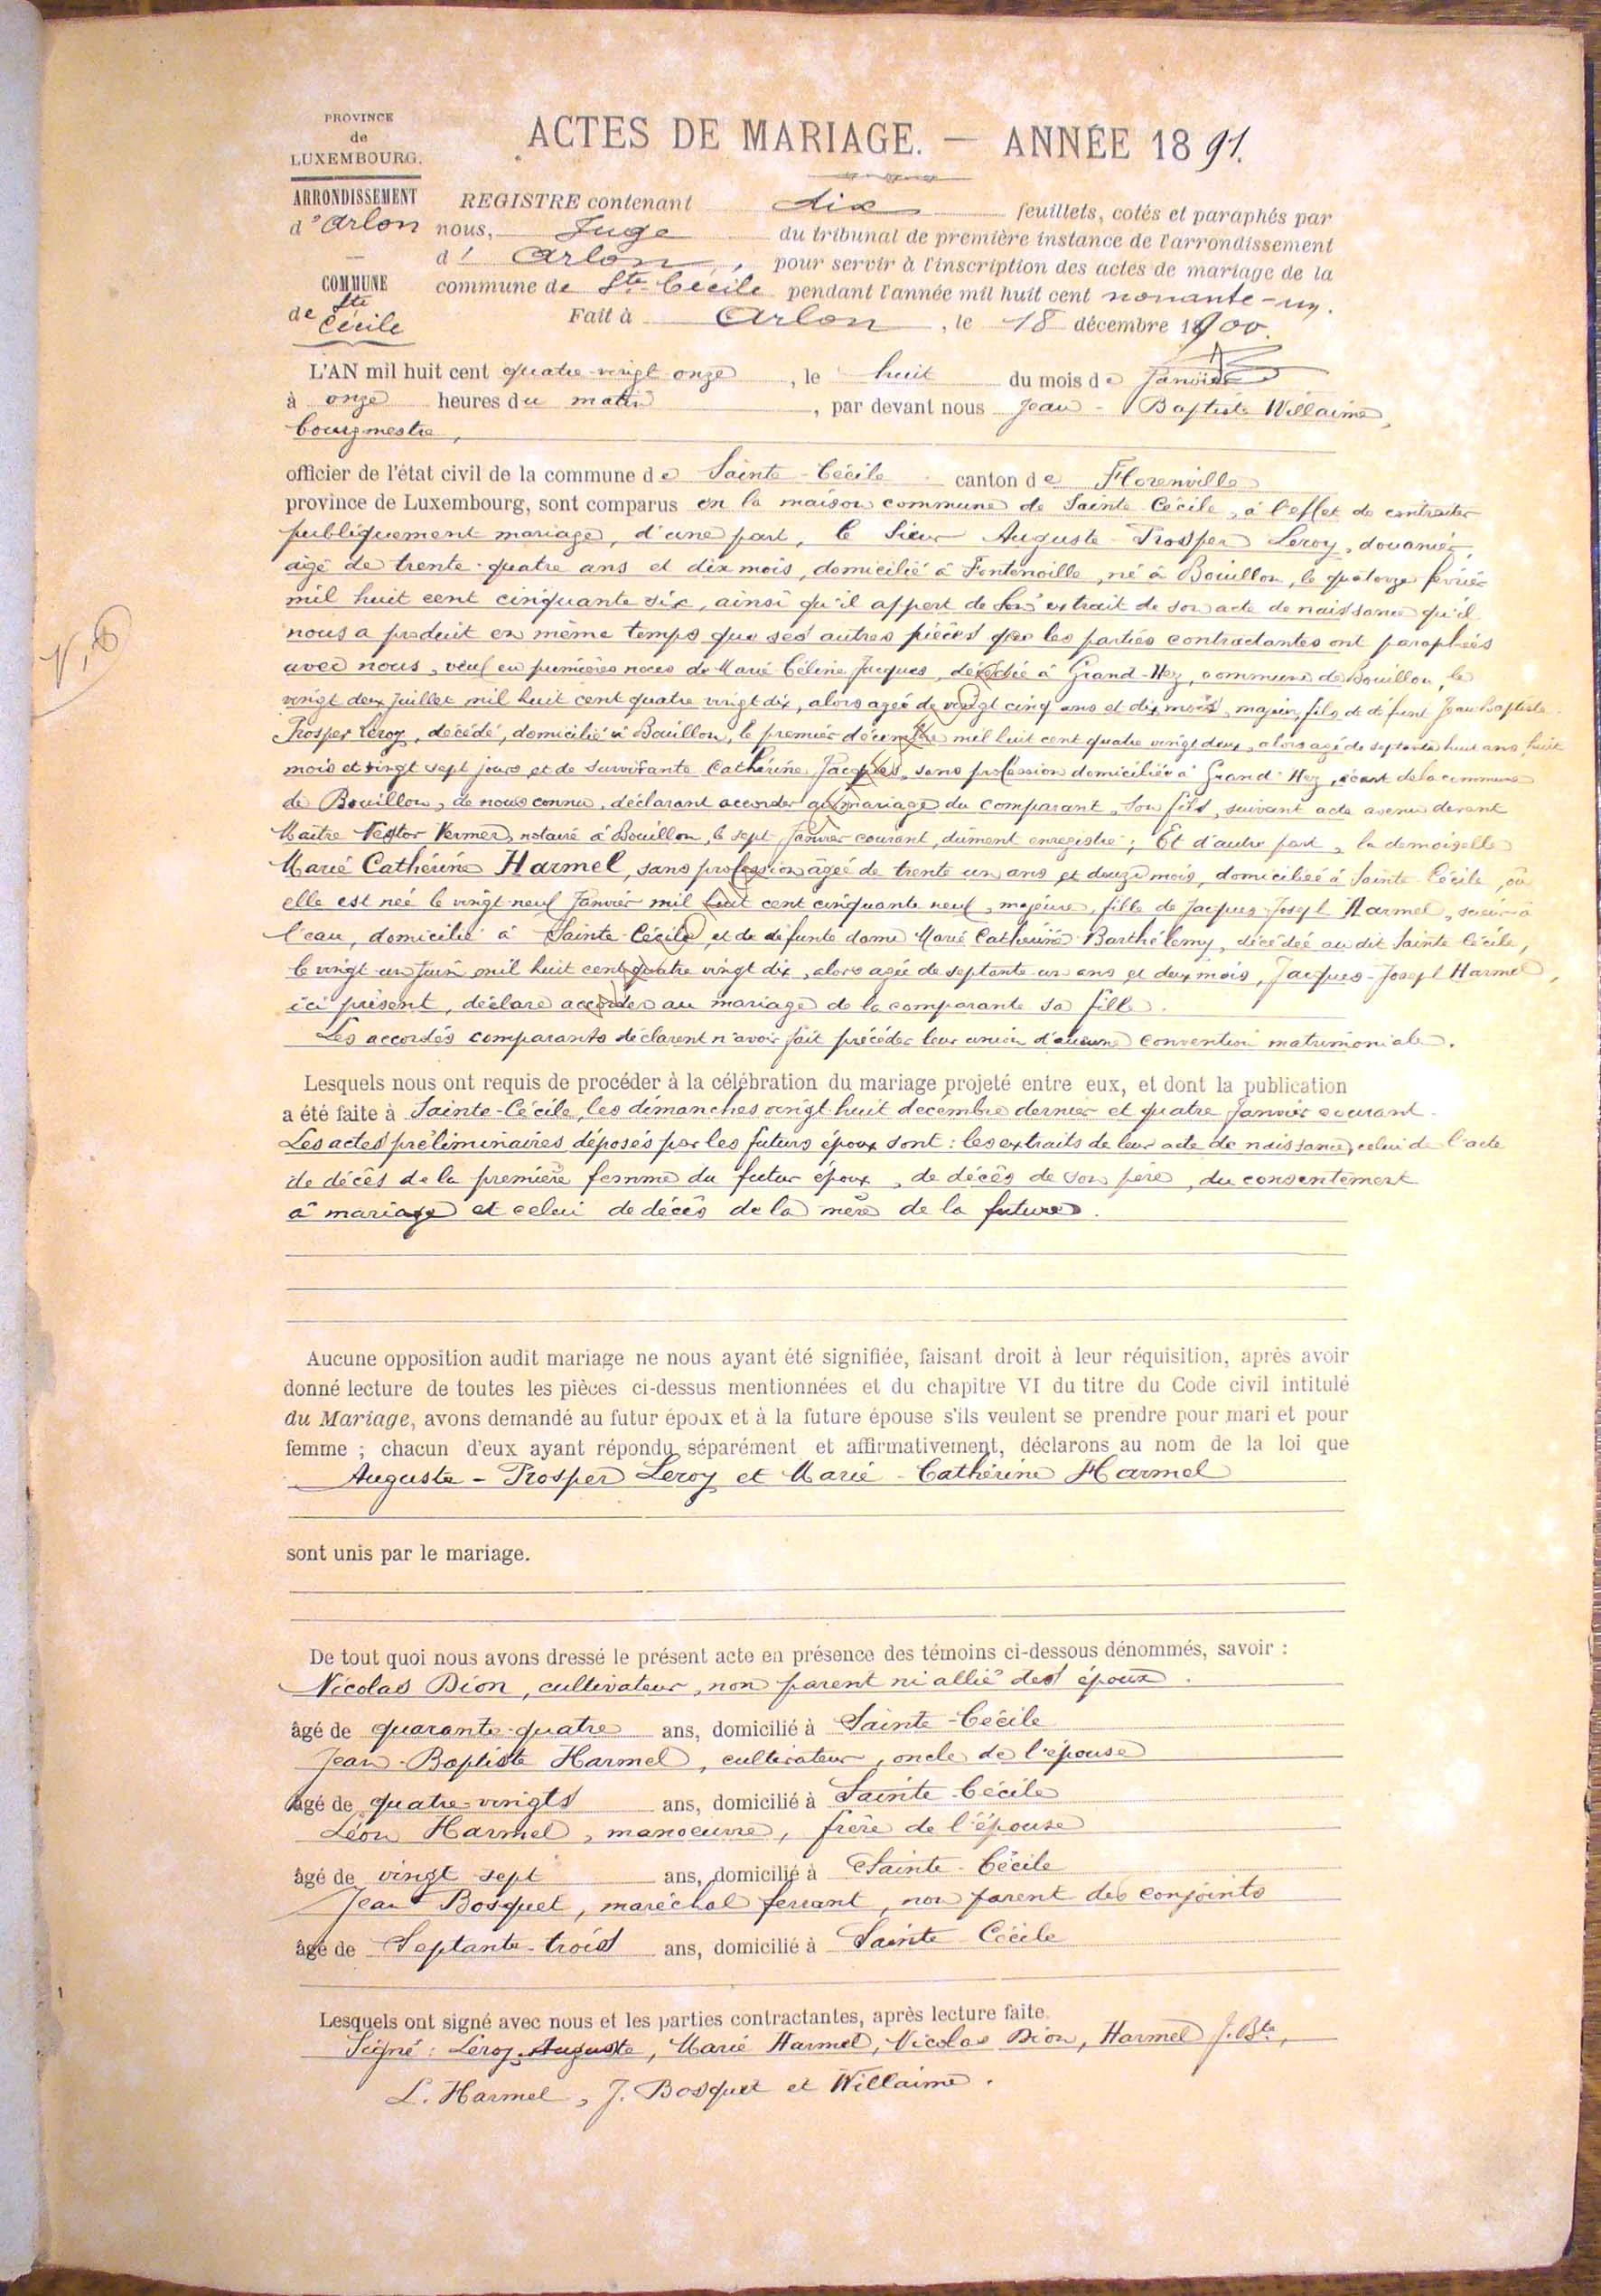 PROVINCE
de
LUXEMBOURG.
ARRONDISSEMENT
d'Arlon
COMMUNE
de Ste
Cécile
ACTES DE MARIAGE. — ANNÉE 1891.
REGISTRE contenant dix feuillets, cotés et paraphés par
nous, Juge du tribunal de première instance de l'arrondissement
d' Arlon, pour servir à l'inscription des actes de mariage de la
commune de Ste-Cécile pendant l'année mil huit cent nonante-un.
Fait à Arlon, le 18 décembre 1900.
L'AN mil huit cent quatre-vingt onze, le huit du mois de Janvier
à onze heures du matin, par devant nous Jean-Baptiste Willaime,
bourgmestre,
officier de l'état civil de la commune de Sainte-Cécile canton de Florenville
province de Luxembourg, sont comparus en la maison commune de Sainte Cécile, à l'effet de contracter
publiquement mariage, d'une part, le Sieur Auguste-Prosper Leroy, douanier,
âgé de trente-quatre ans et dix mois, domicilié à Fontenoille, né à Bouillon, le quatorze février
mil huit cent cinquante six, ainsi qu'il appert de l'extrait de son acte de naissance qu'il
nous a produit en même temps que ses autres pièces que les parties contractantes ont paraphées
avec nous, veuf en premières noces de Marie-Céline Jacques, décédée à Grand-Hez, commune de Bouillon, le
vingt deux Juillet mil huit cent quatre vingt dix, alors agée de vingt cinq ans et dix mois, majeur, fils de défunt Jean Baptiste
Prosper Leroy, décédé, domicilié à Bouillon, le premier décembre mil huit cent quatre vingt deux, alors agé de septante huit ans, huit
mois et vingt sept jours et de survivante Catherine Jacques, sans profession domiciliée à Grand-Hez, écart de la commune
de Bouillon, de nous connu, déclarant accorder au mariage du comparant, son fils, suivant acte avenu devant
Maître Nestor Vermer, notaire à Bouillon, le sept Janvier courant, dûment enregistré; Et d'autre part, la demoiselle
Marie Catherine Harmel, sans profession âgée de trente un ans et douze mois, domiciliée à Sainte-Cécile, où
elle est née le vingt-neuf Janvier mil huit cent cinquante neuf, majeure, fille de Jacques-Joseph Harmel, scieur à
l'eau, domicilié à Sainte-Cécile et de défunte dame Marie Catherine Barthélemy, décédée au dit Sainte Cécile,
le vingt-un Juin mil huit cent quatre vingt dix, alors agée de septante-un ans et deux mois, Jacques-Joseph Harmel,
ici présent, déclare accorder au mariage de la comparante sa fille.
Les accordés comparants déclarent n'avoir fait précéder leur union d'aucune convention matrimoniale.
Lesquels nous ont requis de procéder à la célébration du mariage projeté entre eux, et dont la publication
a été faite à Sainte-Cécile, les dimanches vingt-huit décembre dernier et quatre Janvier courant.
Les actes préliminaires déposés par les futurs époux sont : les extraits de leur acte de naissance, celui de l'acte
de décès de la première femme du futur époux, de décès de son père, du consentement
à mariage et celui de décès de la mère de la future.
Aucune opposition audit mariage ne nous ayant été signifiée, faisant droit à leur réquisition, après avoir
donné lecture de toutes les pièces ci-dessus mentionnées et du chapitre VI du titre du Code civil intitulé
du Mariage, avons demandé au futur époux et à la future épouse s'ils veulent se prendre pour mari et pour
femme ; chacun d'eux ayant répondu séparément et affirmativement, déclarons au nom de la loi que
Auguste-Prosper Leroy et Marie-Catherine Harmel
sont unis par le mariage.
De tout quoi nous avons dressé le présent acte en présence des témoins ci-dessous dénommés, savoir :
Nicolas Dion, cultivateur, non parent ni allié des époux.
âgé de quarante-quatre ans, domicilié à Sainte-Cécile
Jean-Baptiste Harmel, cultivateur, oncle de l'épouse
âgé de quatre-vingts ans, domicilié à Sainte-Cécile
Léon Harmel, manoeuvre, frère de l'épouse
âgé de vingt sept ans, domicilié à Sainte-Cécile
Jean Bosquet, maréchal ferrant, non parent des conjoints
âgé de Septante-trois ans, domicilié à Sainte Cécile
Lesquels ont signé avec nous et les parties contractantes, après lecture faite.
Signé : Leroy Auguste, Marie Harmel, Nicolas Dion, Harmel J. Bte,
L. Harmel, J. Bosquet et Willaime.